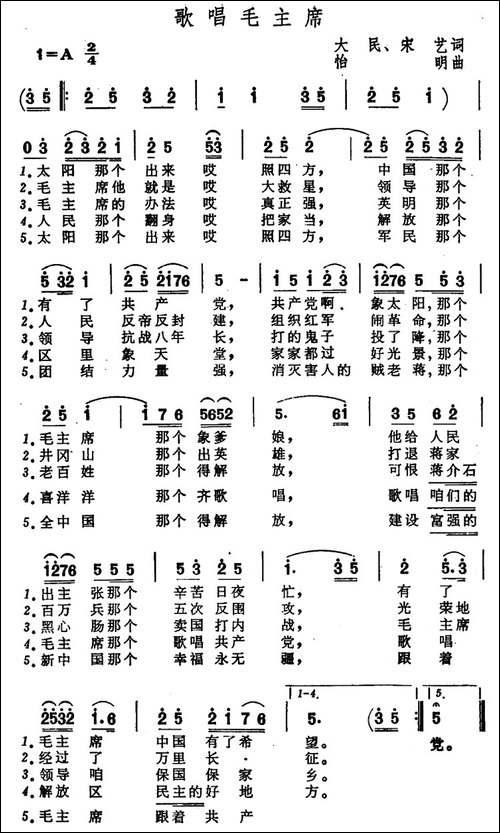 歌唱毛主席
1=A 2/4
大民、宋艺词
怡明曲
(3 5 ‖: 2 5 3 2 | 1 1 3 5 | 2 5 1 6)
0 3 2 3 2 1 | 2 5 5 3 | 2 5 2 | 3 2 2 1
1.太阳那个出来哎照四方，中国那个
2.毛主席他就是哎大救星，领导那个
3.毛主席的办法哎真正强，英明那个
4.人民那个翻身哎把家当，解放那个
5.太阳那个出来哎照四方，军民那个
5 3 2 1 | 2 5 2 1 7 6 | 5 - | 1 5 1 2 3 | 1 2 7 6 5 5 5
1.有了共产党，共产党啊，象太阳，那个
2.人民反帝反封建，组织红军闹革命，那个
3.领导抗战八年长，打的鬼子投了降，那个
4.区里象天堂，家家都过好光景，那个
5.团结力量强，消灭害人的贼老蒋，那个
2 5 1 | 1 7 6 5 6 5 2 | 5. 6 1 | 3 5 6 2
1.毛主席那个象爹娘，他给人民
2.井冈山那个出英雄，打退蒋家
3.老百姓那个得解放，可恨蒋介石
4.喜洋洋那个齐歌唱，歌唱咱们的
5.全中国那个得解放，建设富强的
1 2 7 6 5 5 5 | 5 3 2 5 | 1. 3 5 | 2 5. 3
1.出主张那个辛苦日夜忙，有了
2.百万兵那个五次反围攻，光荣地
3.黑心肠那个卖国打内战，毛主席
4.毛主席那个歌唱共产党，歌唱
5.新中国那个幸福永无疆，跟着
2 5 3 2 1. 6 | 2 5 2 1 7 6 | 1-4. 5. (3 5 :‖ 5. 5 ‖
1.毛主席中国有了希望。党。
2.经过了万里长征。
3.领导咱保国保家乡。
4.解放区民主的好地方。
5.毛主席跟着共产